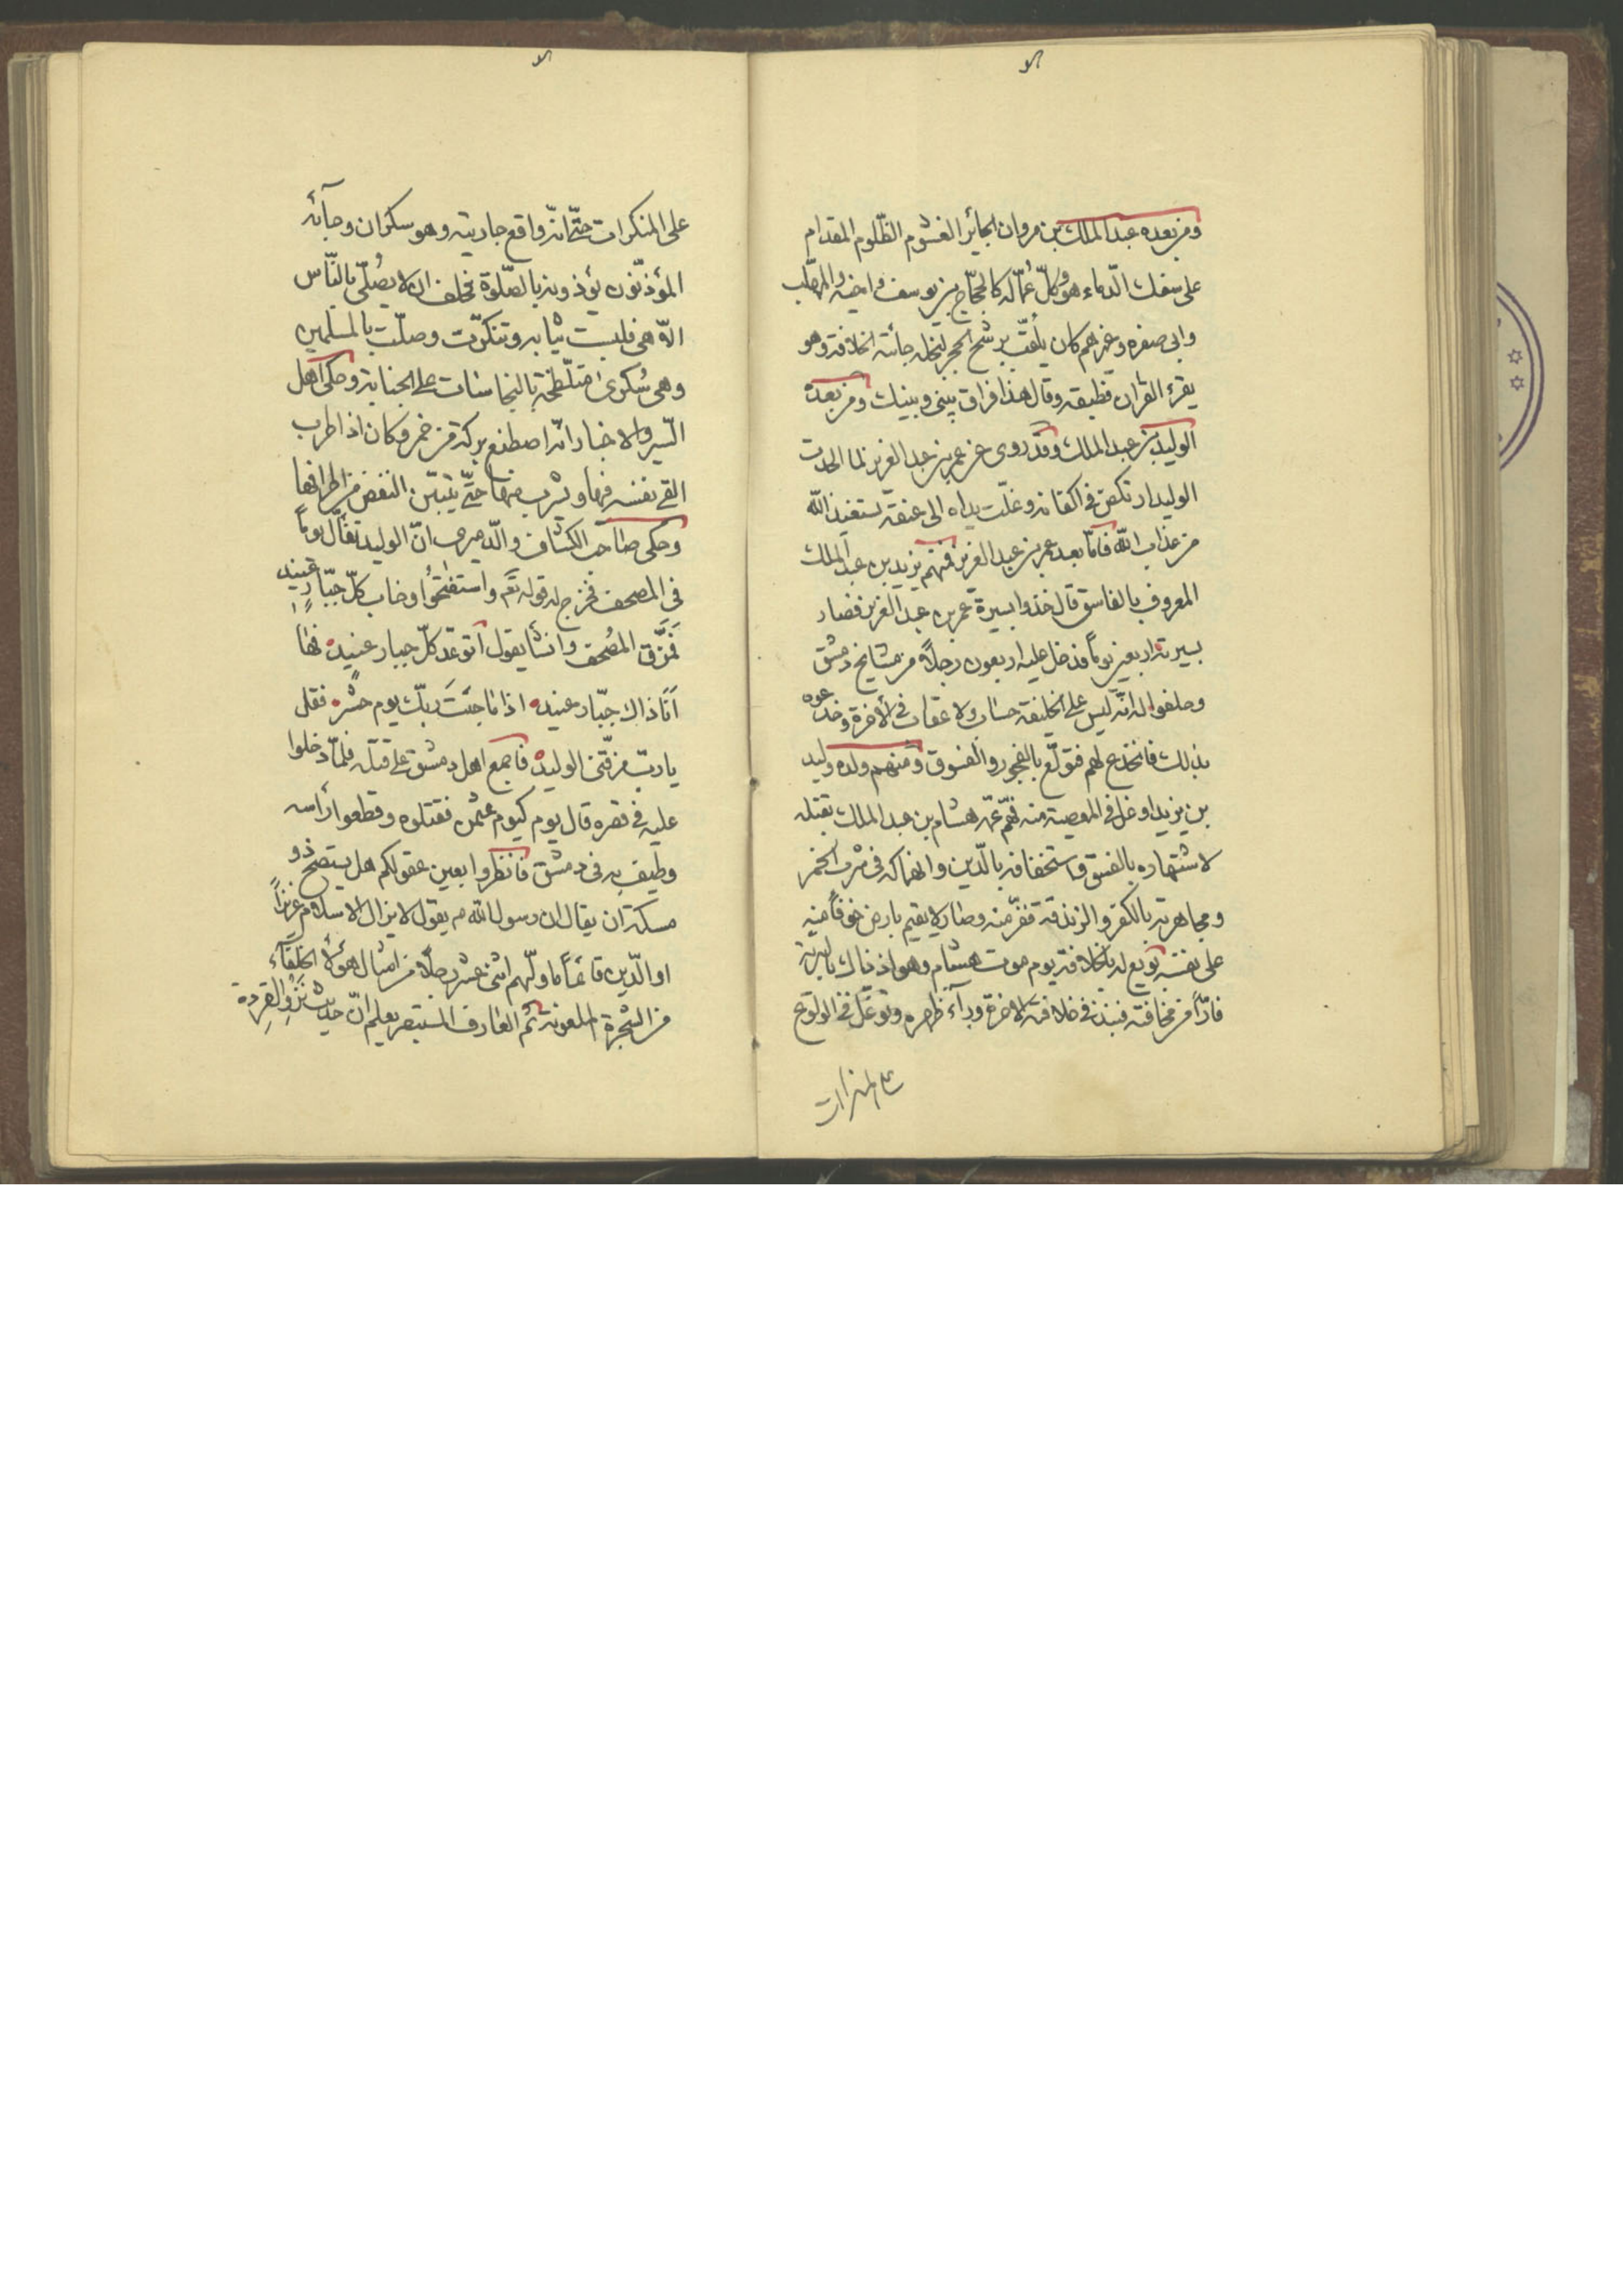 ومن بعده عبد الملك بن مروان الجائر الغشوم الظّلوم المقدام
على سفك الدّماء هو وكلّ عمّاله كالحجّاج بن يوسف واخيه والمهلّب
وابي صفره وغيرهم كان يلقّب برشح الحجر لبخله جائته الخلافة وهو
يقرء القران فطبقه وقال هذا فراق بيني وبينك ومن بعده
الوليد بن عبد الملك وقد روى عن عمر بن عبد العزيز لما الحدت
الوليد ارتكض في اكفانه وغلّت يداه الى عنقه نستعيذ بالله
من عذاب الله فامّا بعد عمر بن عبد العزيز فمنهم يزيد بن عبد الملك
المعروف بالفاسق قال خذوا بسيرة عمر بن عبد العزيز فصار
بسيرته اربعين يوماً فدخل عليه اربعون رجلاً من مشايخ دمشق
وحلفوا له انّه ليس على الخليفة حساب ولا عقاب في الاخرة وخدعوه
بذلك فانخدع لهم فتولّع بالفجور والفسوق ومنهم ولده وليد
بن يزيد اوغل في المعصية منه فهمّ عمّه هشام بن عبد الملك بقتله
لاشتهاره بالفسق واستخفافه بالدّين وانهماكه في شرب الخمر
ومجاهرته بالكفر والزندقة ففرّ منه وصار لا يقيم بارض خوفاً منه
على نفسه بويع له بالخلافة يوم موت هشام وهو اذ ذاك بالبرية
فارّاً من مخافته فنبذ في خلافته الاخرة ورآء ظهره وتوغل في الولوع
على المنكرات
على المنكرات حتّى انّه واقع جاريته وهو سكران وجآئه
المؤذّنون يؤذونه بالصّلوة فحلف ان لا يصلّي بالنّاس
الّا هي فلبست ثيابه وتنكّرت وصلّت بالمسلمين
وهي سكرى متلطّخة بالنجاسات على الجنابة وحكى اهل
السّير والاخبار انّه اصطنع بركة من خمر وكان اذا طرب
القى نفسه فيها ويشرب منها حتّى يتبيّن النقص من اطرافها
وحكى صاحب الكشّاف والدّميري انّ الوليد تفأّل يوماً
في المصحف فخرج له قوله تعَ واستفتحوا وخاب كلّ جبّار عنيد
فمزّق المصحف وانشأ يقول اتوعد كلّ جبار عنيد فها
انا ذاك جبّار عنيد اذا ما جئت ربّك يوم حشر فقل
يا ربّ مزّقني الوليد فاجمع اهل دمشق على قتله فلمّا دخلوا
عليه في قصره قال يوم كيوم عثمن فقتلوه وقطعوا رأسه
وطيف به في دمشق فانظروا بعين عقولكم هل يستصحّ ذو
مسكة ان يقال ان رسول الله ص يقول لا يزال الاسلام عزيزاً
او الدّين قائماً ما ولّهم اثنى عشر رجلاً من امثال هؤلآء الخلفآء
من الشجرة الملعونة ثم العارف المستبصر يعلم انّ حديث نزو القردة